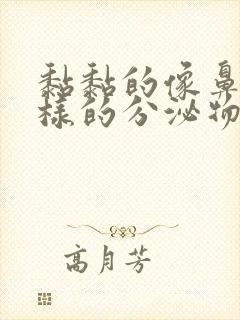 黏黏的像鼻
样的分泌物
高月芳